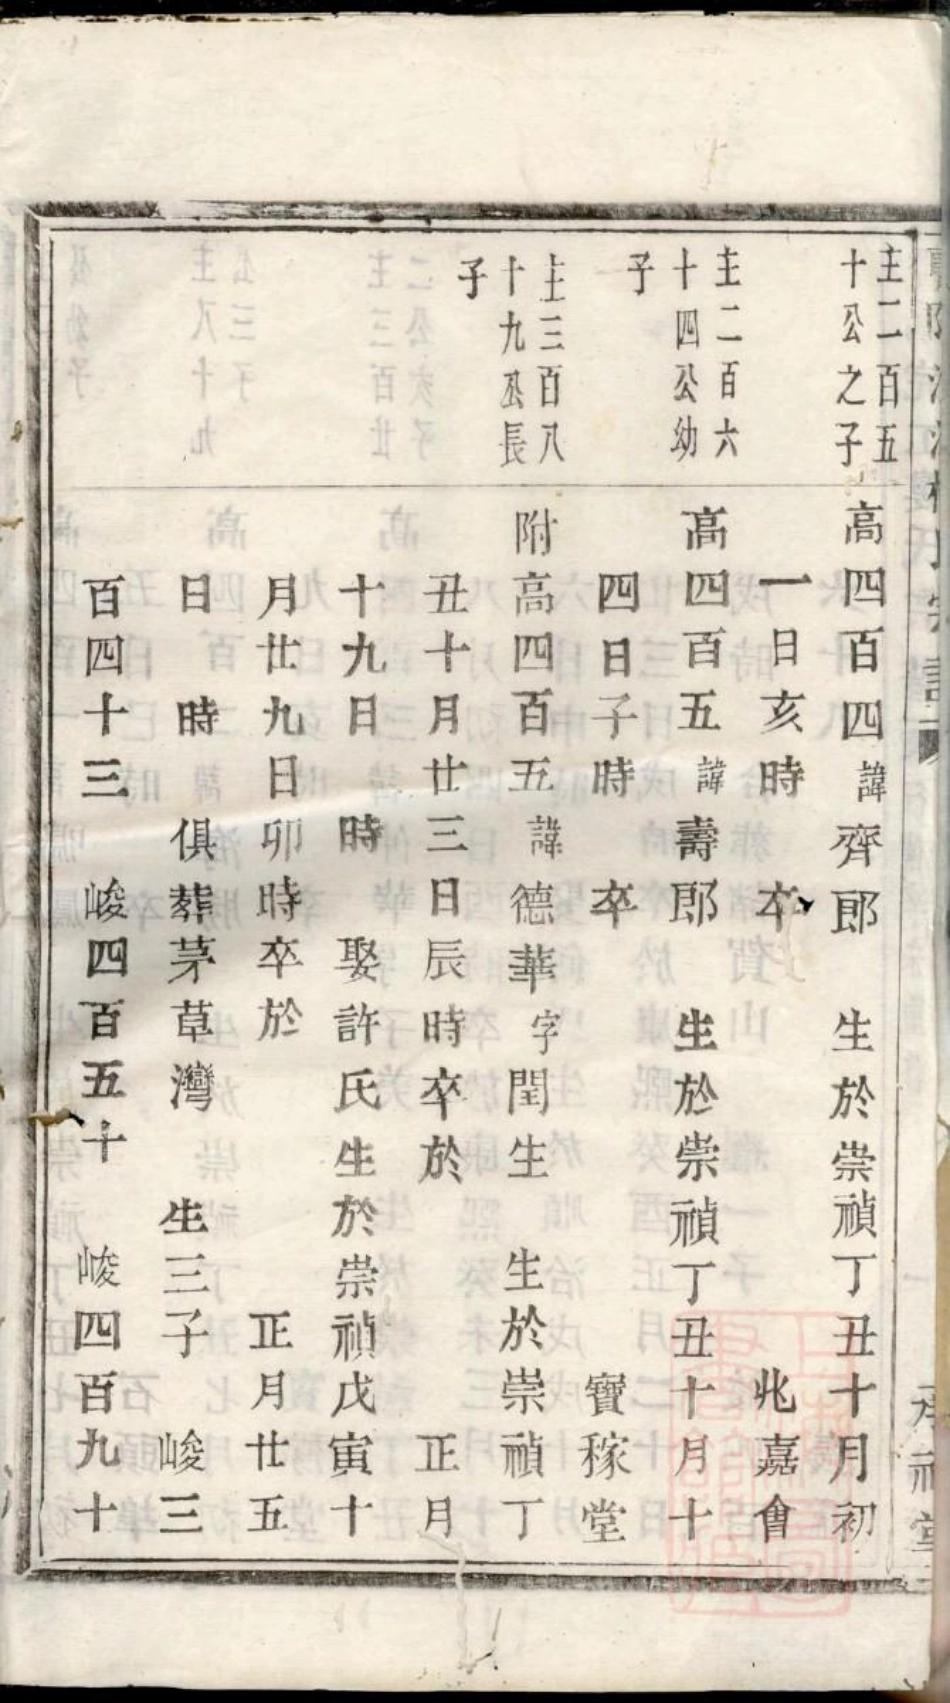 圭二百五
十公之子
高四百四諱齊郎　生於崇禎丁丑十月初
一日亥時　卒　兆嘉會
圭二百六
十四公幼
子
高四百五諱壽郎　生於崇禎丁丑十月十
四日子時　卒　寶稼堂
圭三百八
十九公長
子
附高四百五諱德華字閏生　生於崇禎丁
丑十月廿三日辰時卒於　正月
十九日　時　娶許氏生於崇禎戊寅十
月廿九日卯時卒於　正月廿五
日　時　俱葬茅草灣　生三子　峻三
百四十三　峻四百五十　峻四百九十
承祀堂